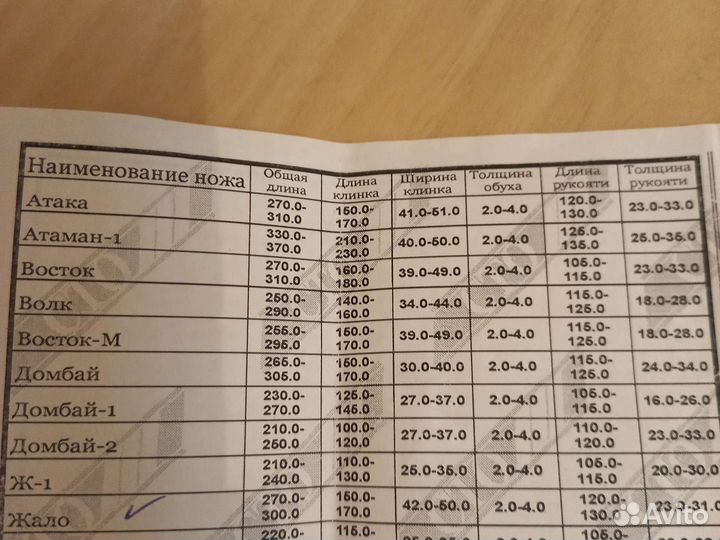 Наименование ножа Общая длина Длина клинка Ширина клинка Толщина обуха Длина рукояти Толщина рукояти
Атака 270.0-310.0 150.0-170.0 41.0-51.0 2.0-4.0 120.0-130.0 23.0-33.0
Атаман-1 330.0-370.0 210.0-230.0 40.0-50.0 2.0-4.0 125.0-135.0 25.0-35.0
Восток 270.0-310.0 160.0-180.0 39.0-49.0 2.0-4.0 105.0-115.0 23.0-33.0
Волк 250.0-290.0 140.0-160.0 34.0-44.0 2.0-4.0 115.0-125.0 18.0-28.0
Восток-М 255.0-295.0 150.0-170.0 39.0-49.0 2.0-4.0 115.0-125.0 18.0-28.0
Домбай 265.0-305.0 150.0-170.0 30.0-40.0 2.0-4.0 115.0-125.0 24.0-34.0
Домбай-1 230.0-270.0 125.0-145.0 27.0-37.0 2.0-4.0 105.0-115.0 16.0-26.0
Домбай-2 210.0-250.0 100.0-120.0 27.0-37.0 2.0-4.0 110.0-120.0 23.0-33.0
Ж-1 210.0-240.0 110.0-130.0 25.0-35.0 2.0-4.0 105.0-115.0 20.0-30.0
Жало 270.0-300.0 150.0-170.0 42.0-50.0 2.0-4.0 120.0-130.0 23.0-31.0
220.0- 115.0- 105.0-
Avito